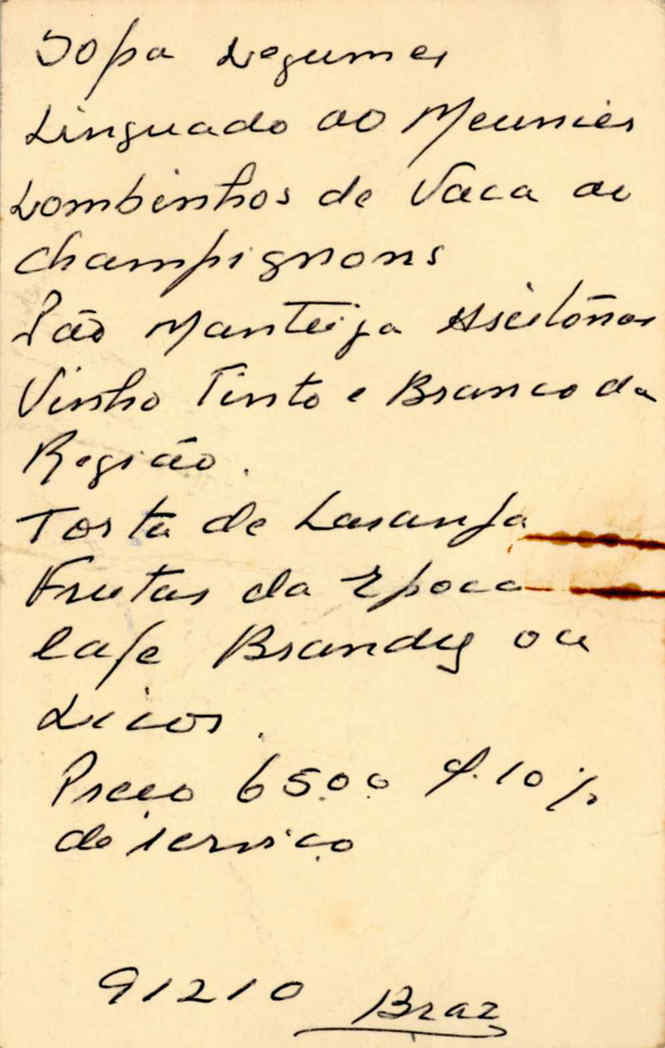 Sopa Legumes
Linguado ao Meunier
Lombinhos de Vaca ao
Champignons
Pão Manteiga Aseitônas
Vinho Tinto e Branco da
Região.
Torta de Laranja
Frutas da Epoca
Cafe Brandy ou
Licor.
Preco 65.00 10%
de serviço
91210 Braz